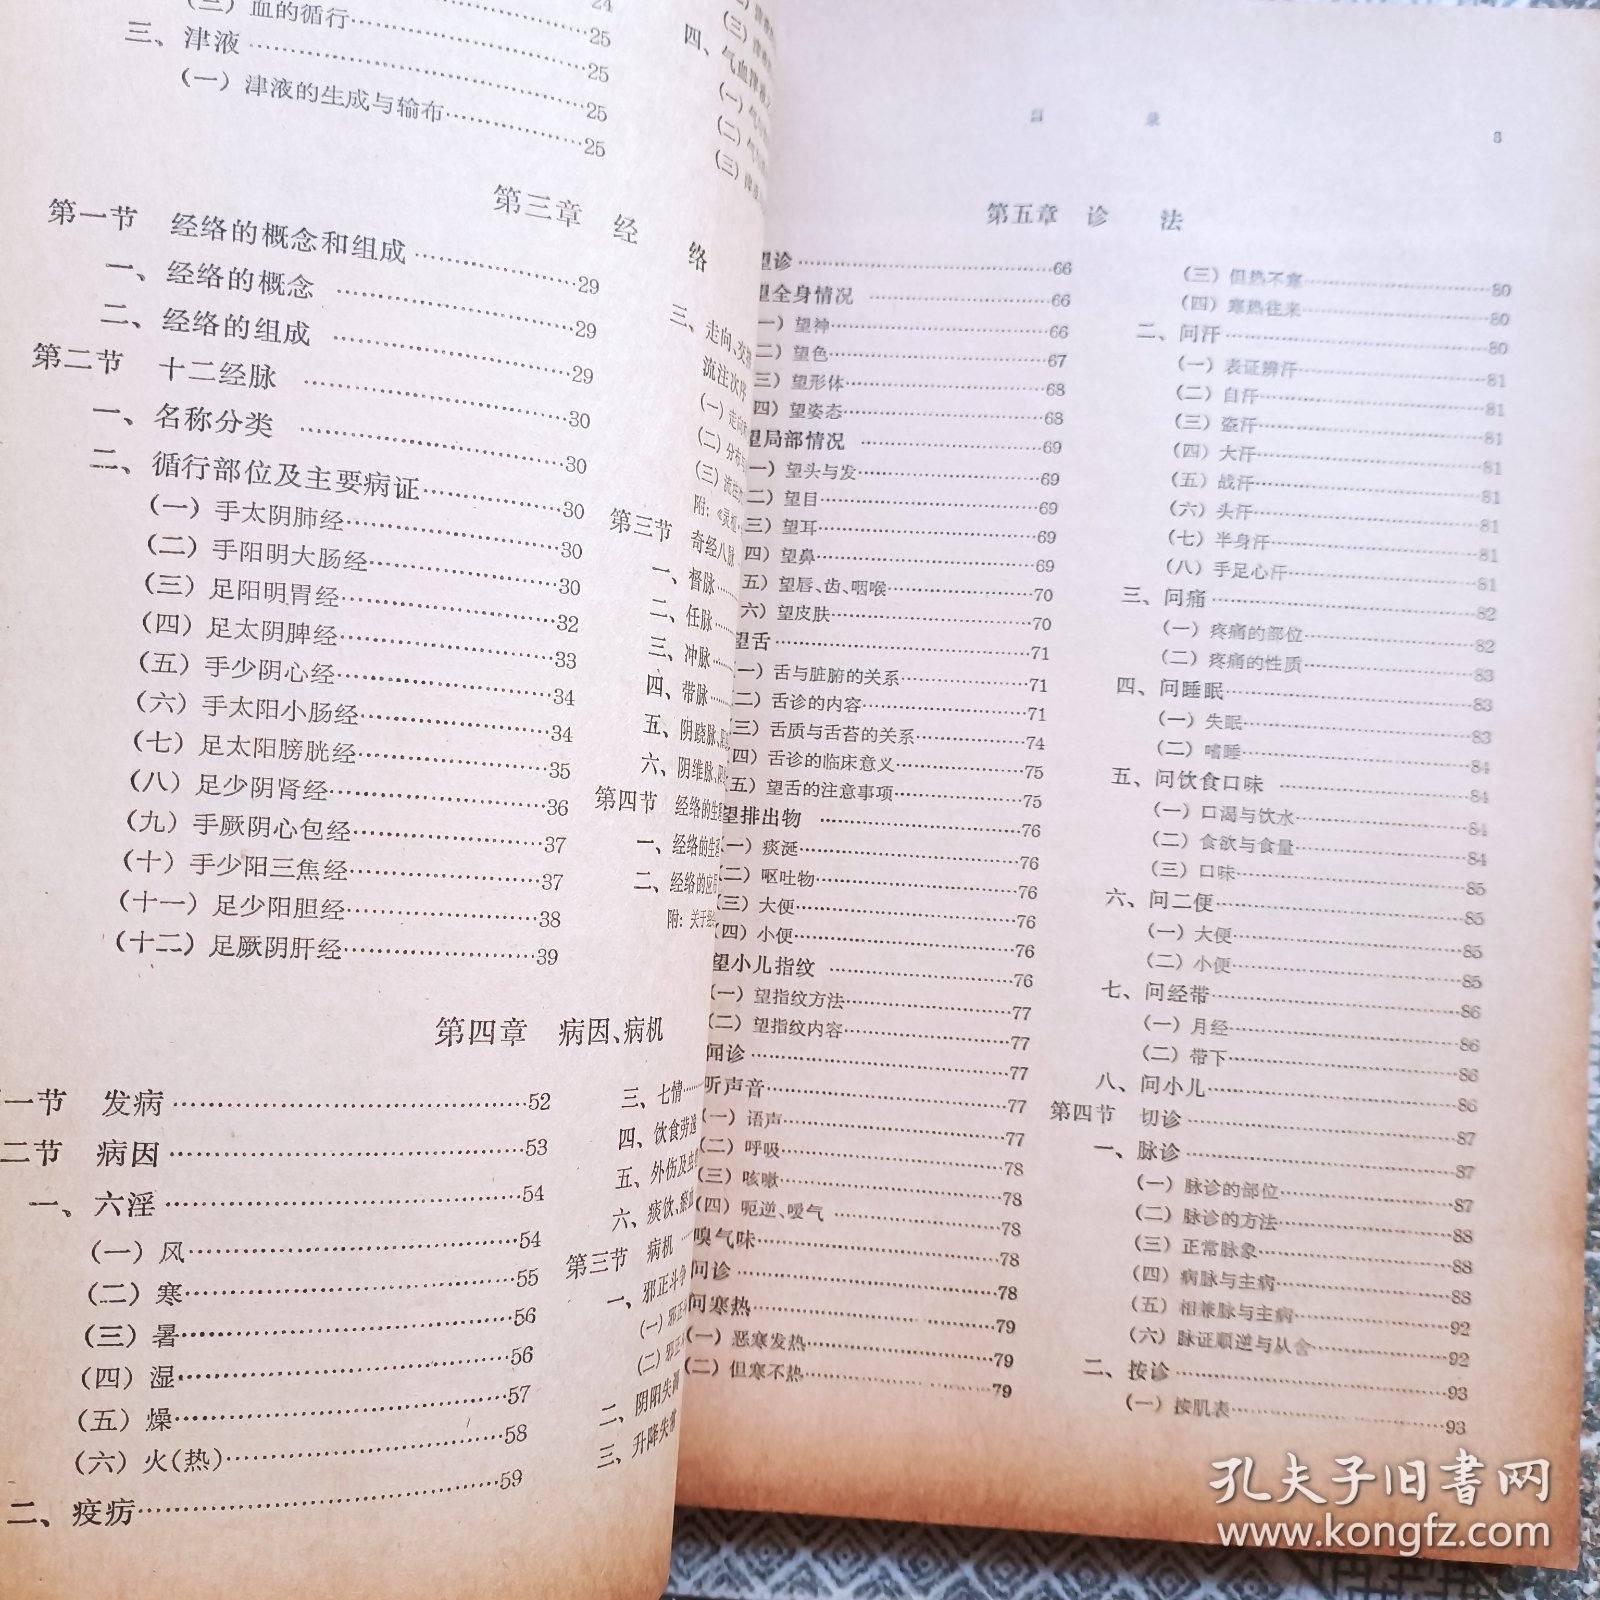 24
(三)血的循行……25
三、津液……25
(一)津液的生成与输布……25
25
第三章 经络
第一节 经络的概念和组成……29
一、经络的概念……29
二、经络的组成……29
第二节 十二经脉……30
一、名称分类……30
二、循行部位及主要病证……30
(一)手太阴肺经……30
(二)手阳明大肠经……30
(三)足阳明胃经……32
(四)足太阴脾经……33
(五)手少阴心经……34
(六)手太阳小肠经……34
(七)足太阳膀胱经……35
(八)足少阴肾经……36
(九)手厥阴心包经……37
(十)手少阳三焦经……37
(十一)足少阳胆经……38
(十二)足厥阴肝经……39
第四章 病因、病机
一节 发病……52
二节 病因……53
一、六淫……54
(一)风……54
(二)寒……55
(三)暑……56
(四)湿……56
(五)燥……57
(六)火(热)……58
二、疫疠……59
四、气血津液
(一)
(二)
(三)
三、走向、交接
流注次序
(一)走向
(二)分布
(三)流注
附:《灵枢
第三节 奇经八脉
一、督脉
二、任脉
三、冲脉
四、带脉
五、阴跷脉、
六、阴维脉、
第四节 经络的生
一、经络的生
二、经络的应
附:关于经
三、七情
四、饮食劳逸
五、外伤及虫
六、痰饮、瘀
第三节 病机
一、邪正斗争
(一)邪正
(二)邪正
二、阴阳失调
三、升降失常
目录 3
第五章 诊法
望诊……66
望全身情况……66
一)望神……66
二)望色……67
三)望形体……68
四)望姿态……68
望局部情况……69
一)望头与发……69
二)望目……69
三)望耳……69
四)望鼻……69
五)望唇、齿、咽喉……70
六)望皮肤……70
望舌……71
(一)舌与脏腑的关系……71
(二)舌诊的内容……71
(三)舌质与舌苔的关系……74
(四)舌诊的临床意义……75
(五)望舌的注意事项……75
望排出物……76
(一)痰涎……76
(二)呕吐物……76
(三)大便……76
(四)小便……76
望小儿指纹……76
(一)望指纹方法……77
(二)望指纹内容……77
闻诊……77
听声音……77
(一)语声……77
(二)呼吸……78
(三)咳嗽……78
(四)呃逆、嗳气……78
嗅气味……78
问诊……78
问寒热……79
(一)恶寒发热……79
(二)但寒不热……79
(三)但热不寒……80
(四)寒热往来……80
二、问汗……80
(一)表证辨汗……81
(二)自汗……81
(三)盗汗……81
(四)大汗……81
(五)战汗……81
(六)头汗……81
(七)半身汗……81
(八)手足心汗……81
三、问痛……82
(一)疼痛的部位……82
(二)疼痛的性质……83
四、问睡眠……83
(一)失眠……83
(二)嗜睡……84
五、问饮食口味……84
(一)口渴与饮水……84
(二)食欲与食量……84
(三)口味……85
六、问二便……85
(一)大便……85
(二)小便……85
七、问经带……86
(一)月经……86
(二)带下……86
八、问小儿……86
第四节 切诊……87
一、脉诊……87
(一)脉诊的部位……87
(二)脉诊的方法……88
(三)正常脉象……88
(四)病脉与主病……88
(五)相兼脉与主病……92
(六)脉证顺逆与从舍……92
二、按诊……93
(一)按肌表……93
孔夫子旧书网
www.kongfz.com